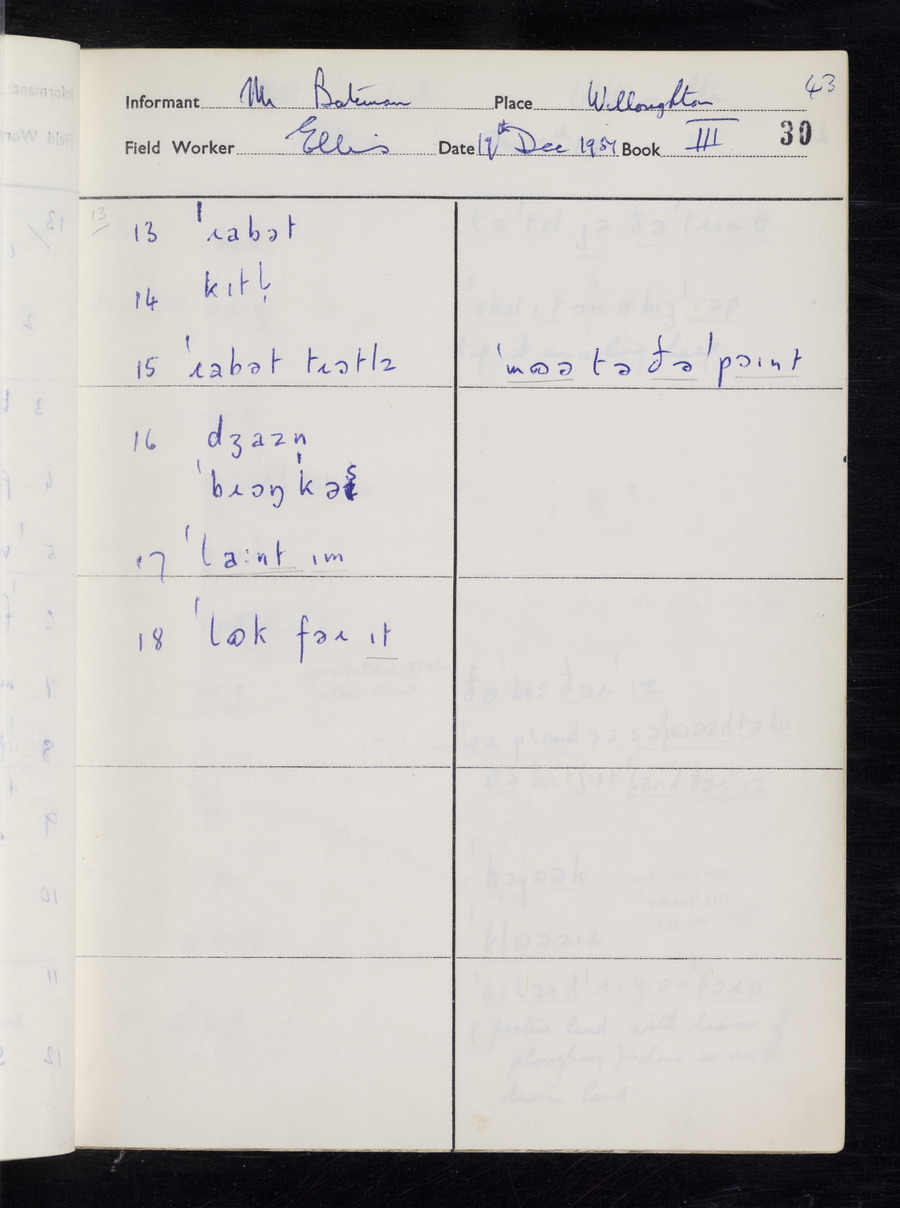 43
Informant Mr Bateman Place Willoughton
Field Worker Ellis Date 19th Dec 1951 Book III 30
13
13 ˈɹabət
14 kɪtl̩
15 ˈɹabət tɹətlz ˈmɷə tə ðə ˈpəɪnt
16 dʒazn̩
ˈbɹəŋkəs
17 ˈla:nt ɪm
18 ˈlɷk fəɹ ɪt